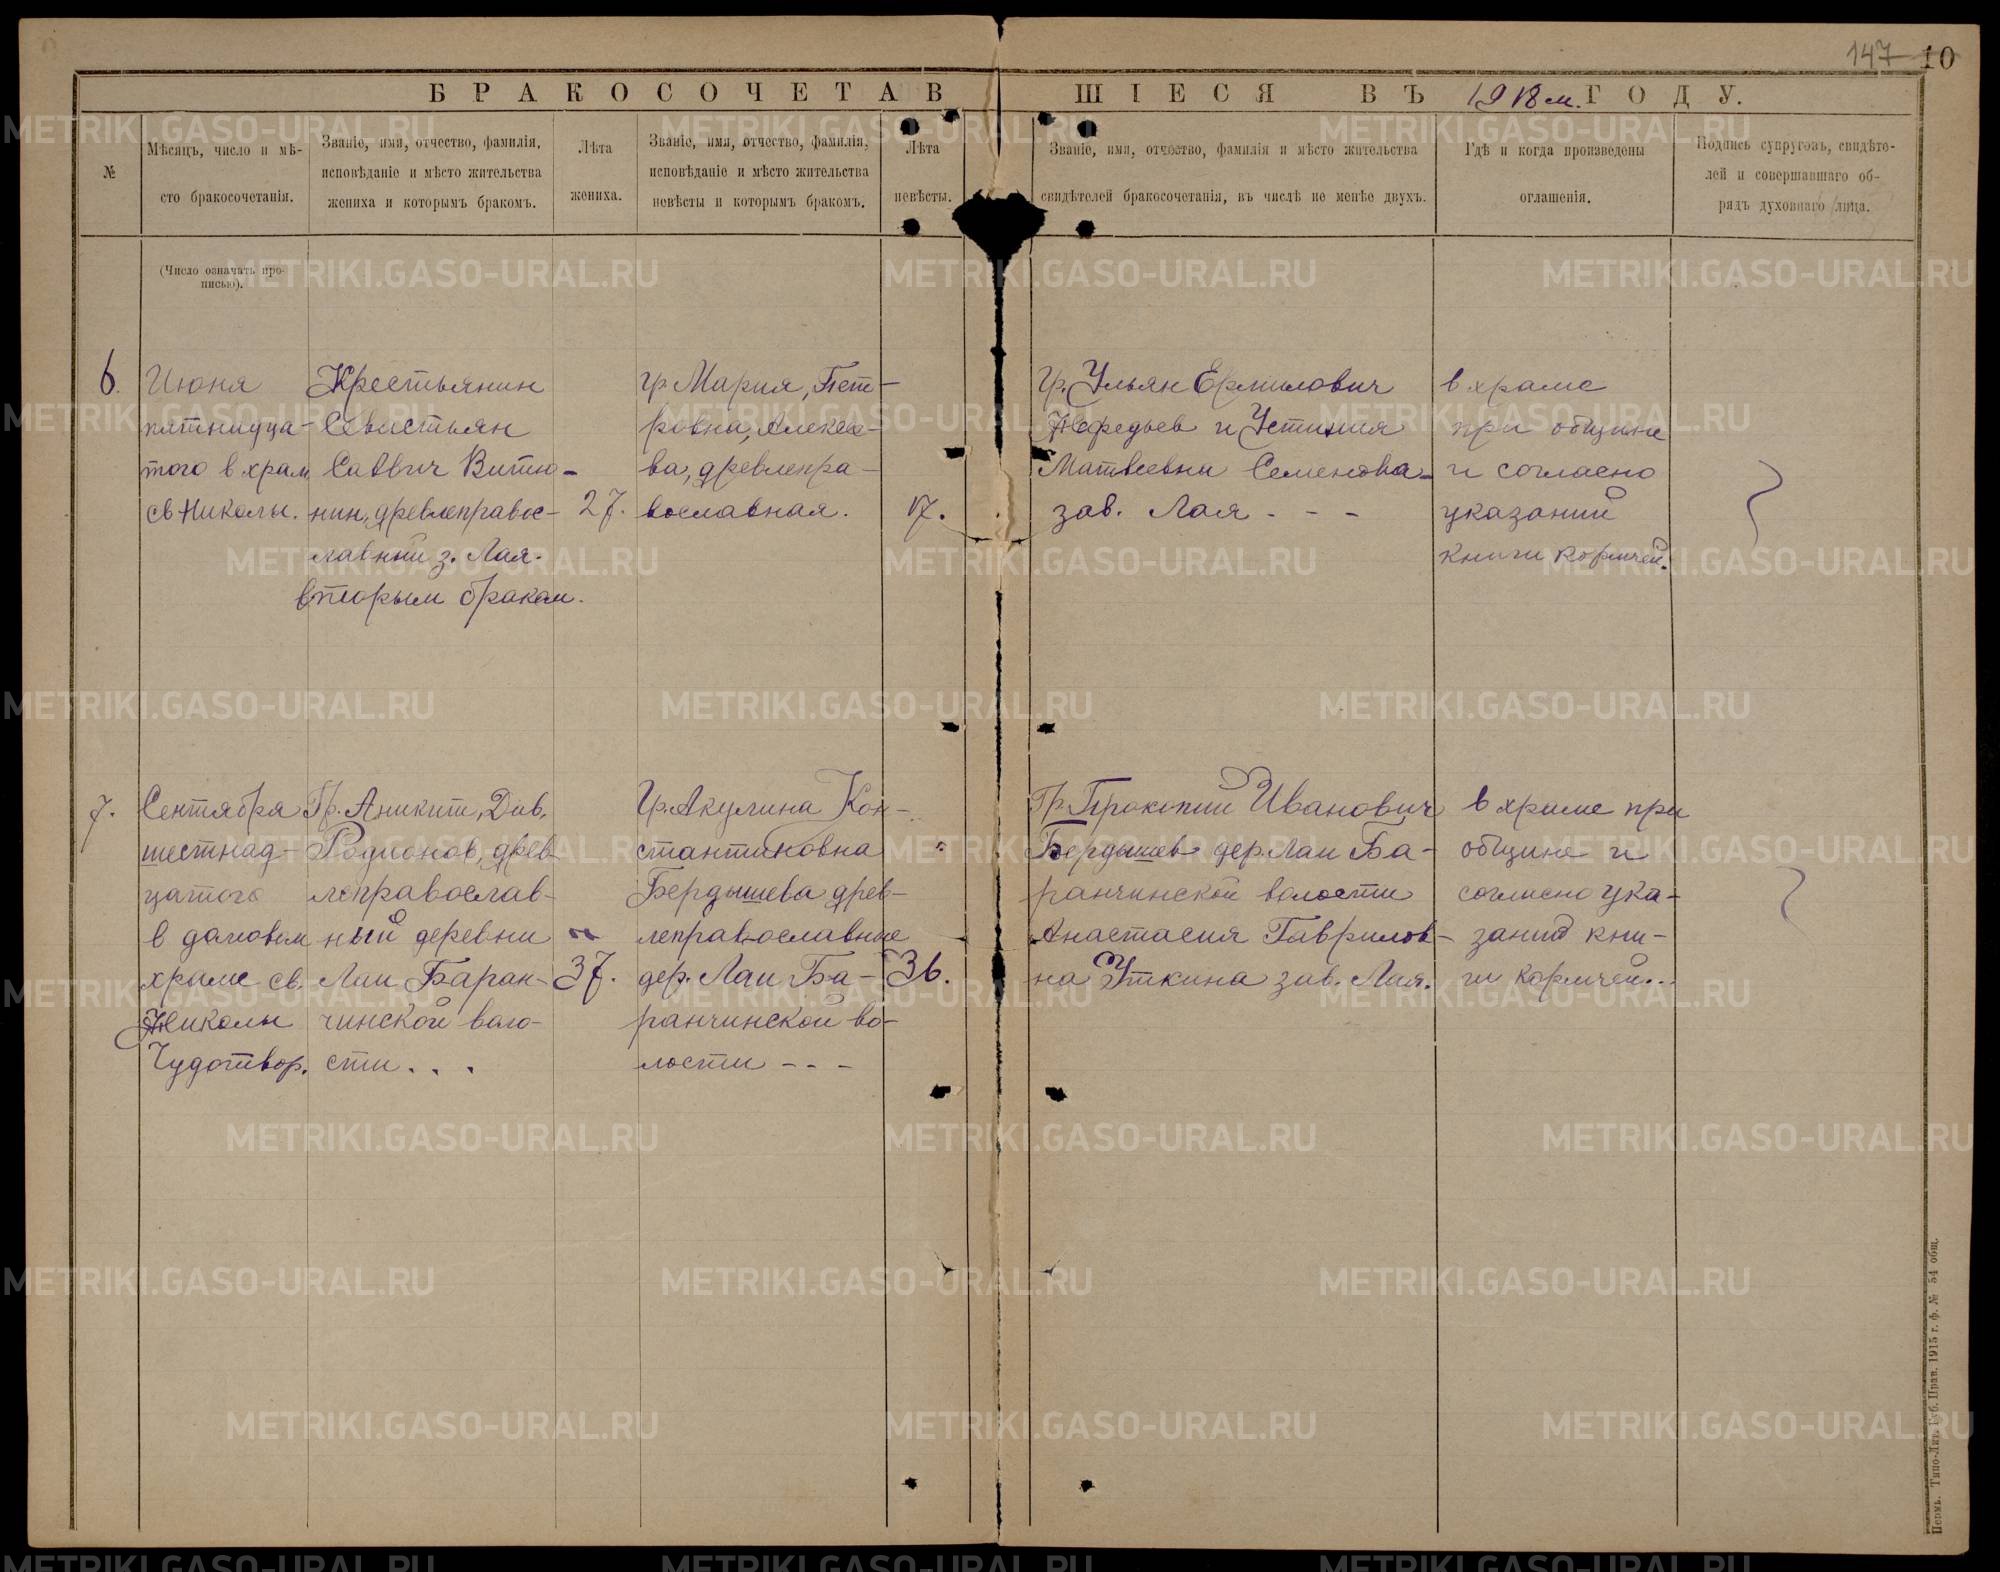 147 10
БРАКОСОЧЕТАВШІЕСЯ ВЪ 1918 м. ГОДУ.
№
Мѣсяцъ, число и мѣ-
сто бракосочетанія.
Званіе, имя, отчество, фамилія,
исповѣданіе и мѣсто жительства
жениха и которымъ бракомъ.
Лѣта
жениха.
Званіе, имя, отчество, фамилія,
исповѣданіе и мѣсто жительства
невѣсты и которымъ бракомъ.
Лѣта
невѣсты.
Званіе, имя, отчество, фамилія и мѣсто жительства
свидѣтелей бракосочетанія, въ числѣ не менѣе двухъ.
Гдѣ и когда произведены
оглашенія.
Подпись супруговъ, свидѣте-
лей и совершавшаго об-
рядъ духовнаго лица.
(Число означать про-
писью).
6.
Июня
пятнадца-
того в храм
св Николы.
Крестьянин
Севастьян
Саввич Витю-
нин, древлеправос-
лавный з. Лая.
вторым браком.
27.
гр Мария, Пет-
ровна, Алексе-
ва, древлепра-
вославная.
17.
Гр. Ульян Ермилович
Нефедьев и Устиния
Матвеевна Семенова-
зав. Лая - - -
в храме
при общине
и согласно
указаний
книги кормчей.
7.
Сентября
шестнад-
цатого
в домовом
храме св.
Николы
Чудотвор.
Гр. Аникит, Дав.
Родионов, древ-
леправослав-
ный деревни
Лаи Баран-
чинской воло-
сти . . .
37.
Гр. Акулина Кон-
стантиновна
Бердышева древ-
леправославные
дер. Лаи Ба-
ранчинской во-
лости - - -
36.
Гр. Прокопий Иванович
Бердышев дер. Лаи Ба-
ранчинской волости
Анастасия Гаврилов-
на Уткина зав. Лая.
в храме при
общине и
согласно ука-
заний кни-
ги кормчей...
Пермь. Типо-Лит. Губ. Прав. 1915 г. ф. № 54 общ.
METRIKI.GASO-URAL.RU